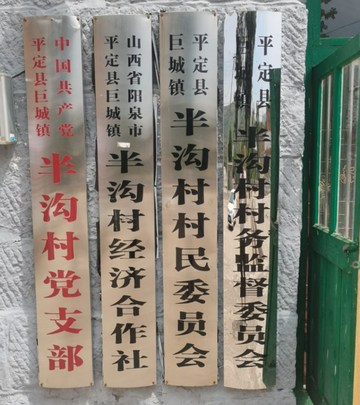 中国共产党
平定县巨城镇
半沟村党支部
山西省阳泉市
平定县巨城镇
半沟村经济合作社
平定县
巨城镇
半沟村村民委员会
平定县
半沟村村务监督委员会